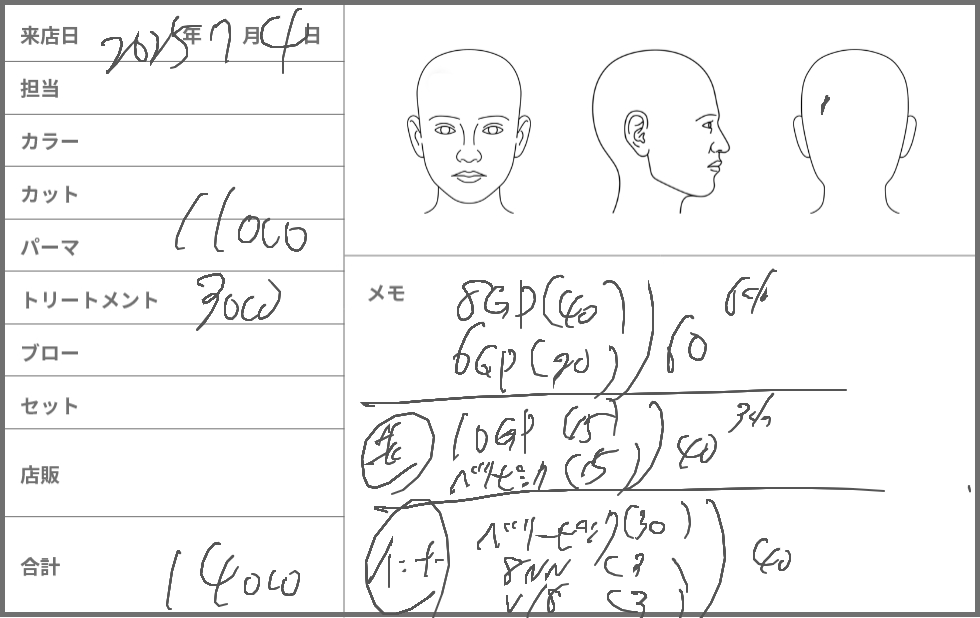 来店日 2025年7月4日
担当
カラー
カット
11000
パーマ
トリートメント 3000
ブロー
セット
店販
合計 14000
メモ
8GP(40) 6%
6GP(20) 60
10GP (15) 3%
ベリーピンク(15) 40
インナー ベリーピンク(30)
8NN (3) 40
V/8 (3)